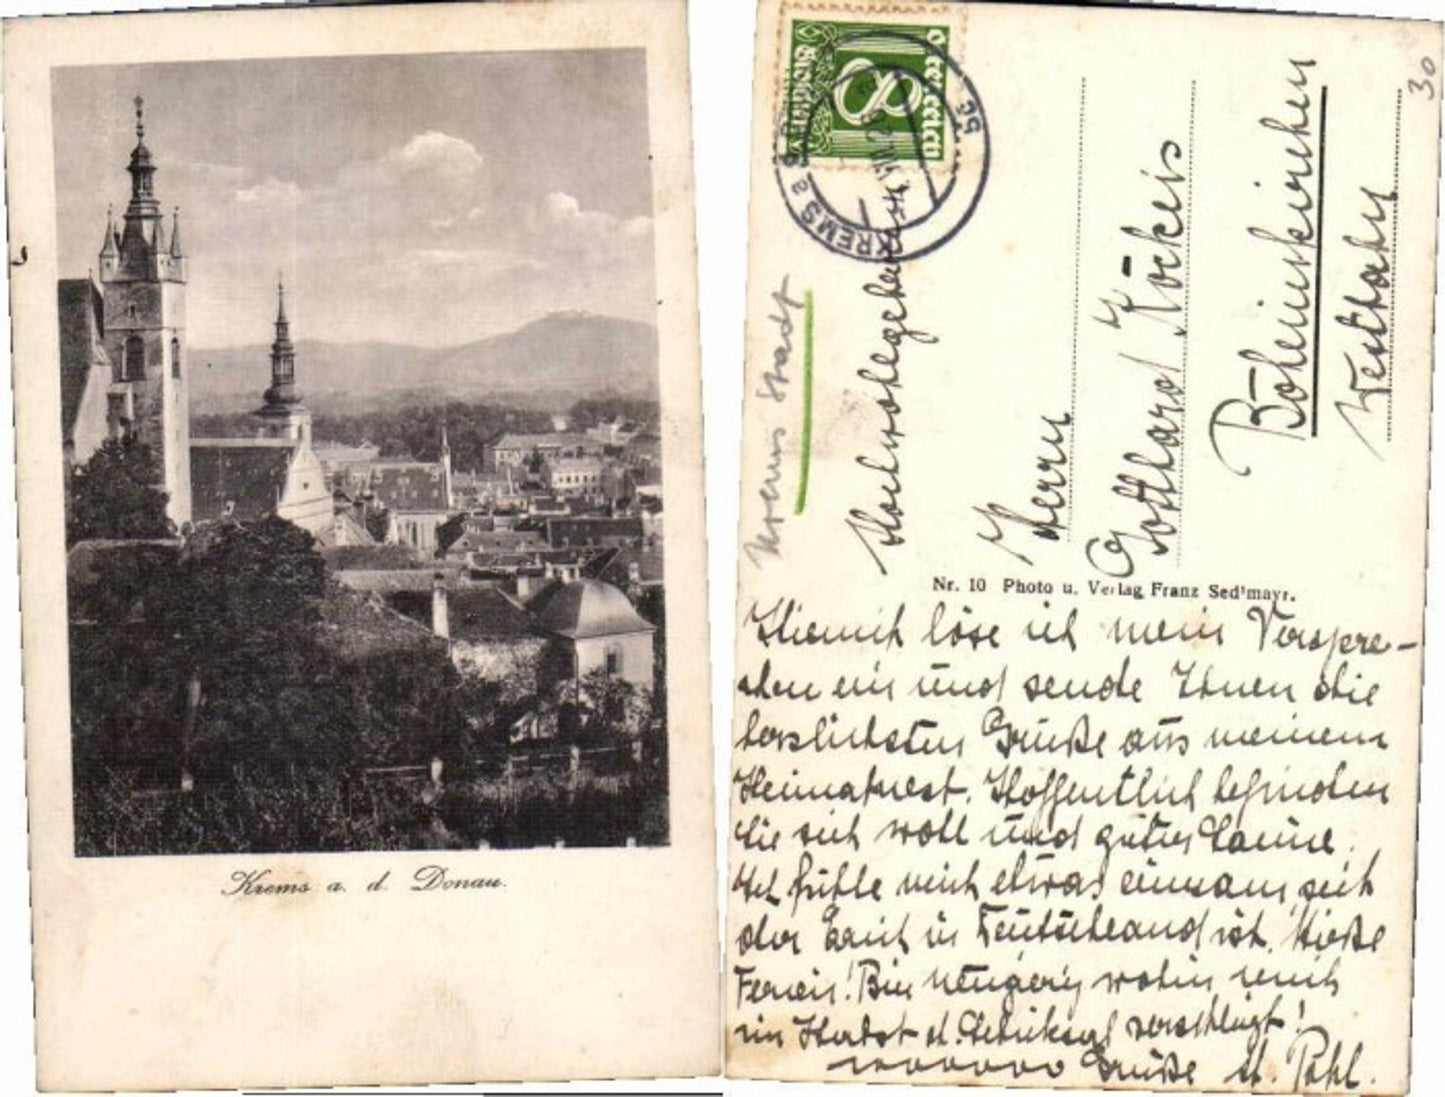 Krems a. d. Donau.
8
Groschen
Österreich
KREMS a
Krems Stadt
30
Hochwohlgeboren
Herrn
Gotthard Köckeis
Böheimkirchen
Westbahn
Nr. 10 Photo u. Verlag Franz Sedlmayr.
Hiemit löse ich mein Verspre-
chen ein und sende Ihnen die
herzlichsten Grüße aus meinem
Heimatnest. Hoffentlich befinden
Sie sich wohl und guter Laune.
Ich fühle mich etwas einsam, seit
der in Deutschland ist.
Ferien! Bin neugierig wohin mich
im Herbst d. Schicksal verschlägt!
Grüße Pohl.